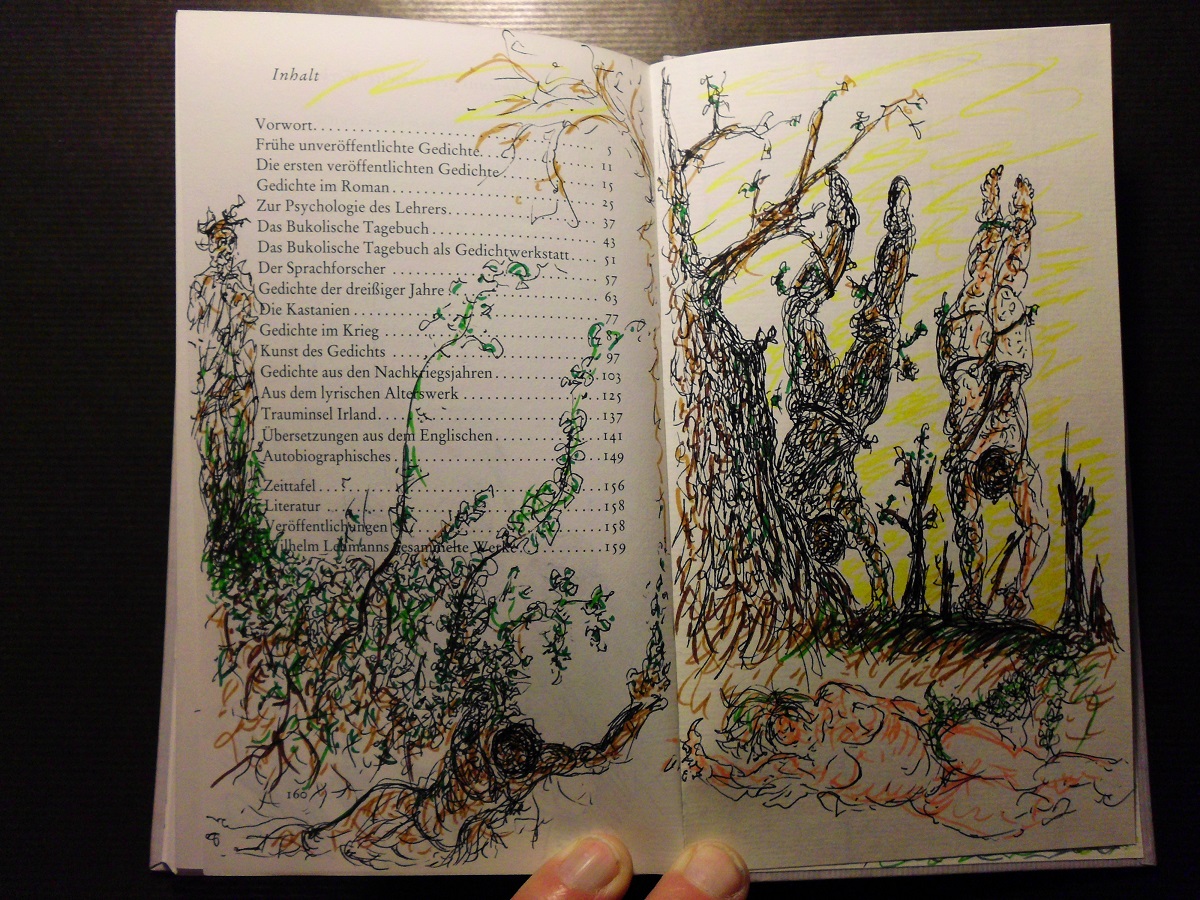 Inhalt
Vorwort. . . . . . . . . . . . . . . . . . . . . . . . . . . . . . 5
Frühe unveröffentlichte Gedichte. . . . . . . . . . . . . 11
Die ersten veröffentlichten Gedichte . . . . . . . . . . 15
Gedichte im Roman . . . . . . . . . . . . . . . . . . . . . 25
Zur Psychologie des Lehrers. . . . . . . . . . . . . . . . 37
Das Bukolische Tagebuch . . . . . . . . . . . . . . . . . 43
Das Bukolische Tagebuch als Gedichtwerkstatt. . . . 51
Der Sprachforscher . . . . . . . . . . . . . . . . . . . . . 57
Gedichte der dreißiger Jahre . . . . . . . . . . . . . . . 63
Die Kastanien . . . . . . . . . . . . . . . . . . . . . . . . 77
Gedichte im Krieg . . . . . . . . . . . . . . . . . . . . . 87
Kunst des Gedichts . . . . . . . . . . . . . . . . . . . . 97
Gedichte aus den Nachkriegsjahren . . . . . . . . . . . 103
Aus dem lyrischen Alterswerk . . . . . . . . . . . . . . 125
Trauminsel Irland. . . . . . . . . . . . . . . . . . . . . . 137
Übersetzungen aus dem Englischen . . . . . . . . . . . 141
Autobiographisches . . . . . . . . . . . . . . . . . . . . 149
Zeittafel . . . . . . . . . . . . . . . . . . . . . . . . . . . 156
Literatur . . . . . . . . . . . . . . . . . . . . . . . . . . . 158
Veröffentlichungen . . . . . . . . . . . . . . . . . . . . 158
Wilhelm Lehmanns gesammelte Werke . . . . . . . . . 159
160